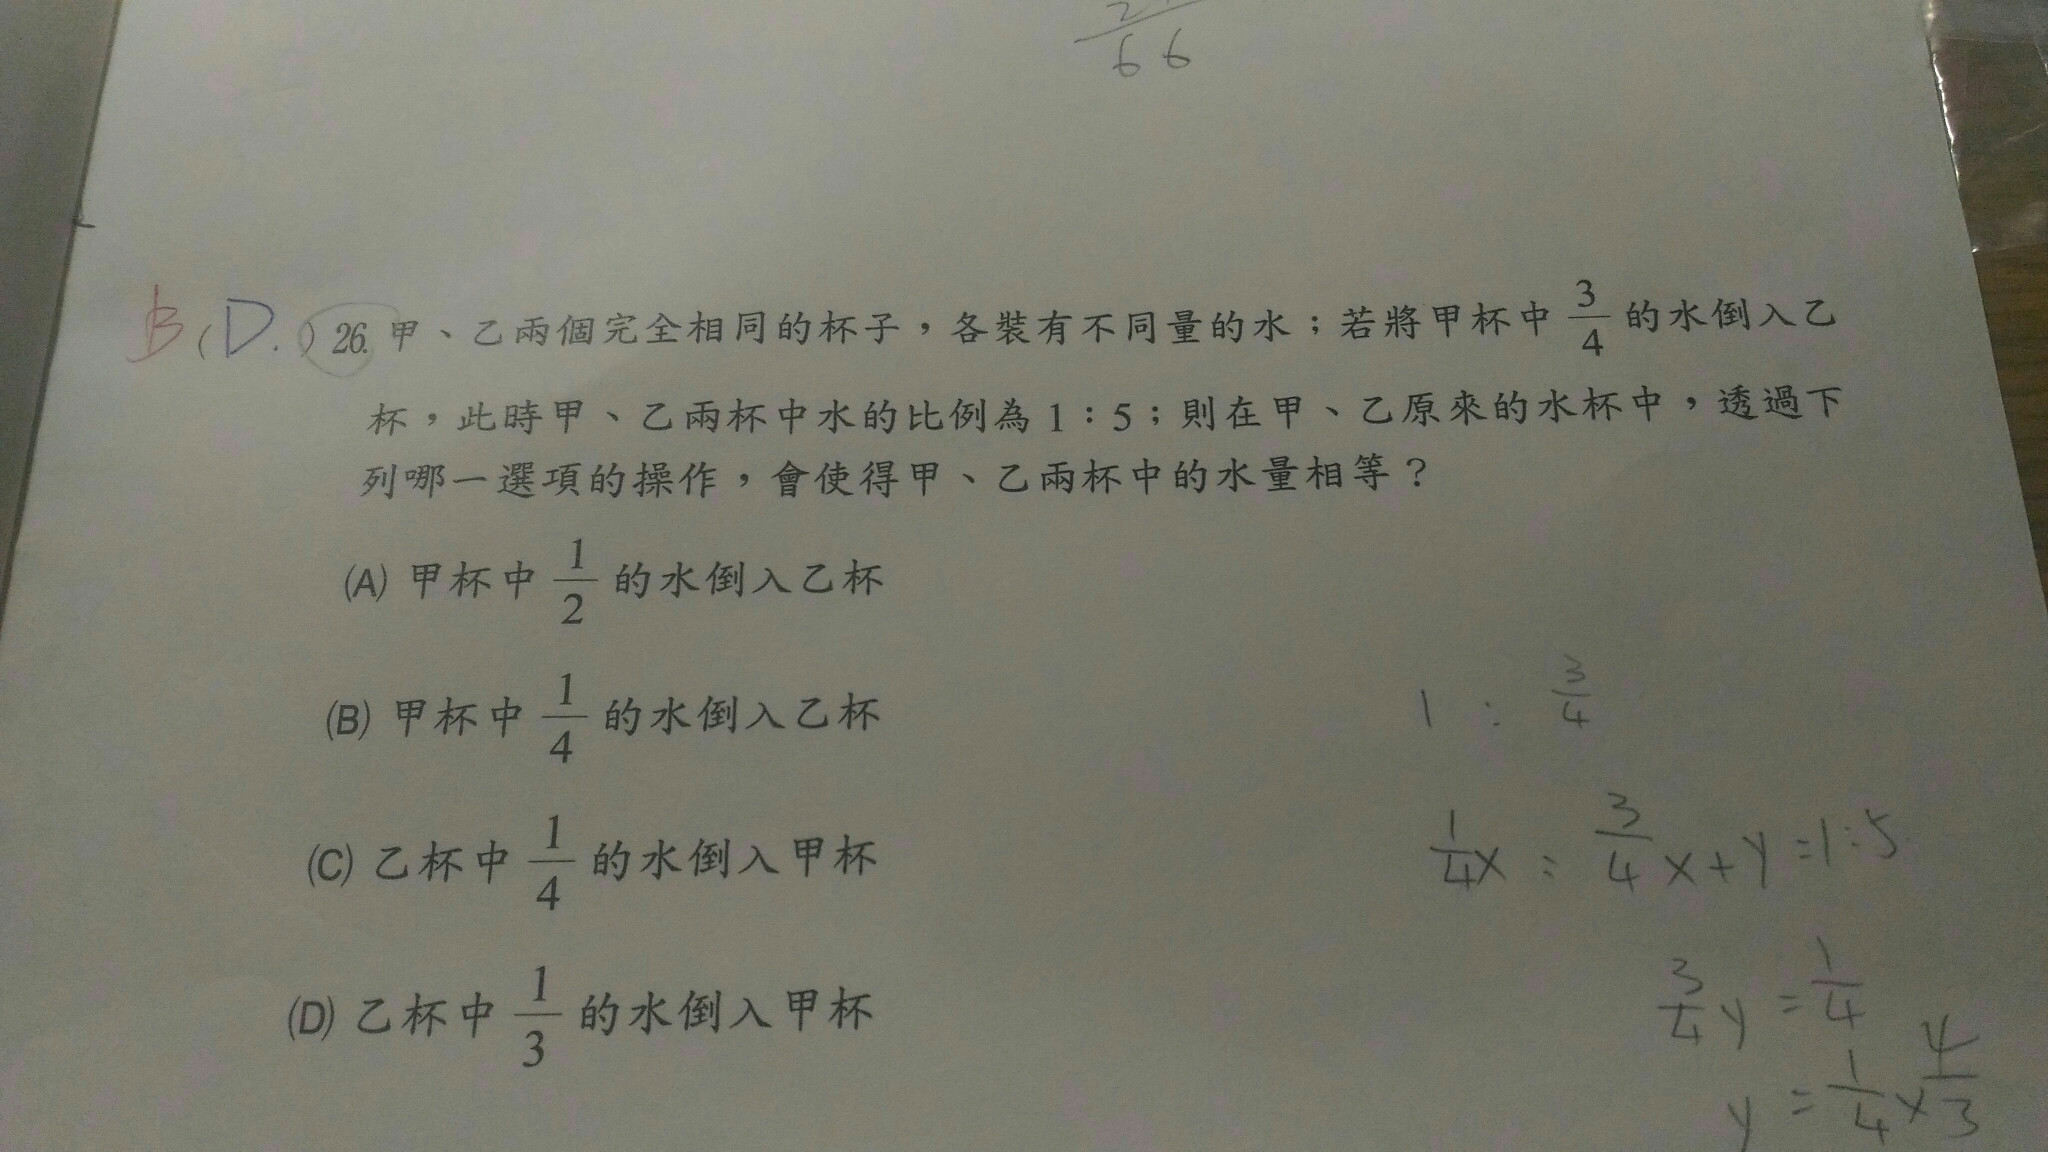 66
B (D.) 26. 甲、乙兩個完全相同的杯子，各裝有不同量的水；若將甲杯中 3/4 的水倒入乙
杯，此時甲、乙兩杯中水的比例為 1：5；則在甲、乙原來的水杯中，透過下
列哪一選項的操作，會使得甲、乙兩杯中的水量相等？
(A) 甲杯中 1/2 的水倒入乙杯
(B) 甲杯中 1/4 的水倒入乙杯
1 : 3/4
(C) 乙杯中 1/4 的水倒入甲杯
1/4x : 3/4x+y=1:5
(D) 乙杯中 1/3 的水倒入甲杯
3/4y = 1/4
y = 1/4 x 4/3